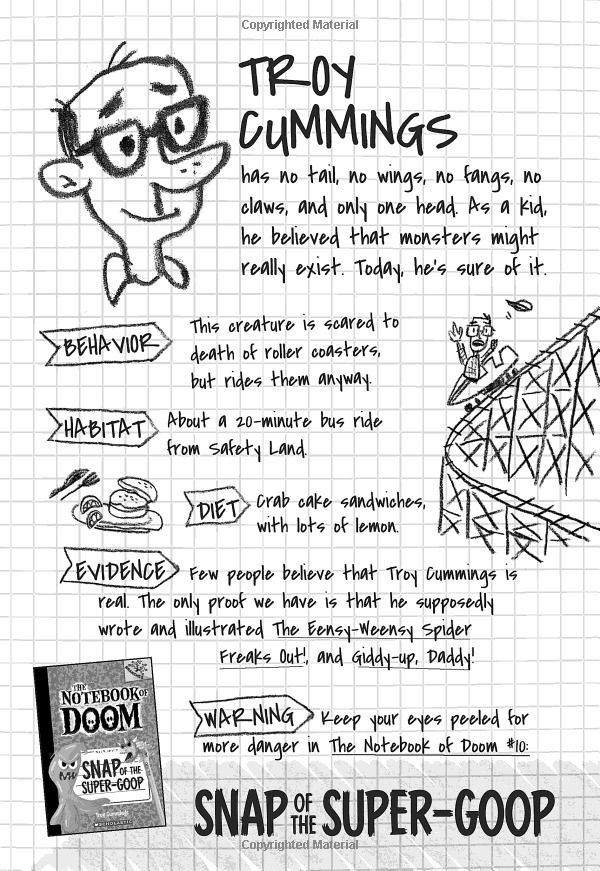 Copyrighted Material
TROY
CUMMINGS
has no tail, no wings, no fangs, no
claws, and only one head. As a kid,
he believed that monsters might
really exist. Today, he's sure of it.
BEHAVIOR
This creature is scared to
death of roller coasters,
but rides them anyway.
HABITAT
About a 20-minute bus ride
from Safety Land.
DIET
Crab cake sandwiches,
with lots of lemon.
EVIDENCE
Few people believe that Troy Cummings is
real. The only proof we have is that he supposedly
wrote and illustrated The Eensy-Weensy Spider
Freaks Out!, and Giddy-up, Daddy!
THE
NOTEBOOK OF
DOOM
SNAP OF THE
SUPER-GOOP
Troy Cummings
SCHOLASTIC
WARNING
Keep your eyes peeled for
more danger in The Notebook of Doom #10:
SNAP OF THE SUPER-GOOP
Copyrighted Material